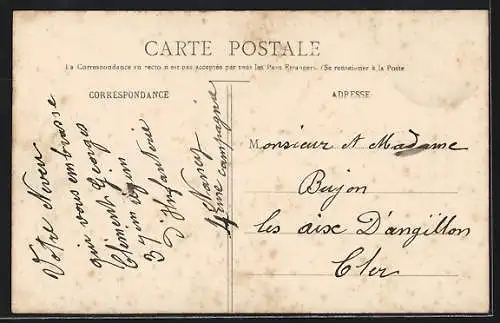 CARTE POSTALE
La Correspondance au recto n'est pas acceptée par tous les Pays Etrangers. (Se renseigner à la Poste
CORRESPONDANCE
ADRESSE
Votre Neveu
qui vous embrasse
Clément Georges
37em régim
D'Infanterie
Nancy
4eme campagnie
Monsieur et Madame
Bujon
les aix D'angillon
Cher